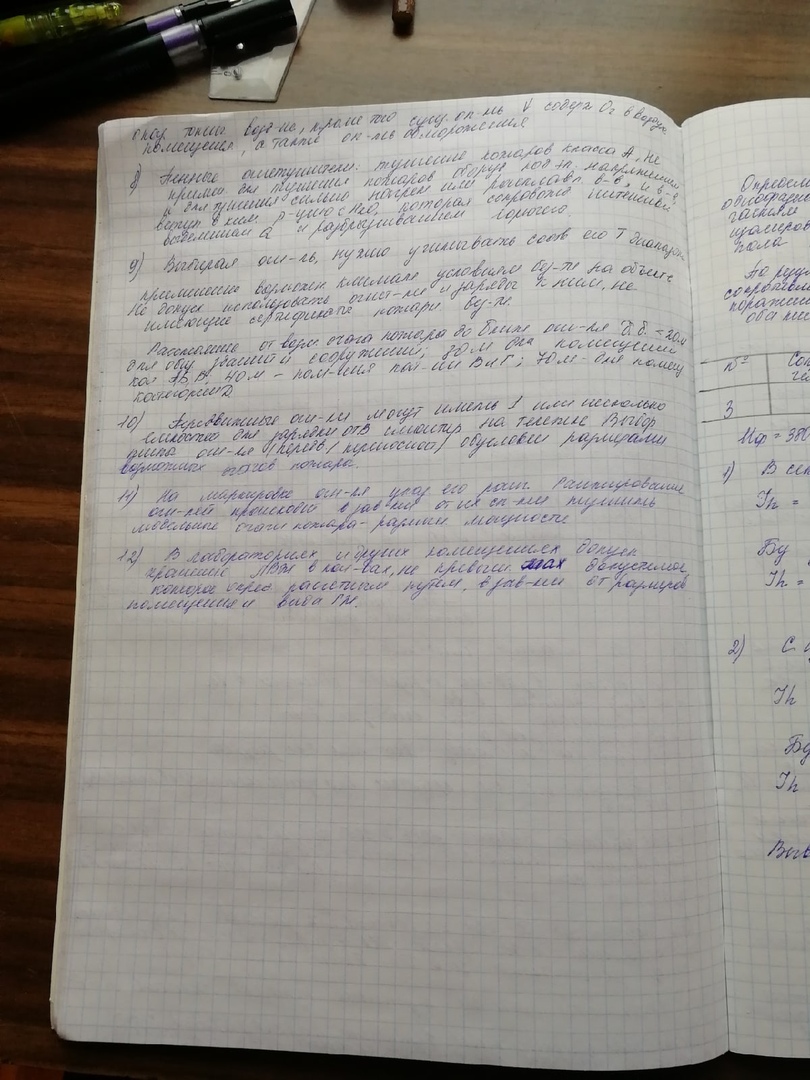 возд-ие, кроме того сущ. оп-ть ↓ содерж O₂ в воздухе
помещения, а также оп-ть обморожения
8) Пенные огнетушители: тушение пожаров класса А, не
примен для тушения пожаров оборуд под эл. напряжением
и для тушения сильно нагрет или расплавл. в-в, и в-в,
вступ в хим. р-цию с H₂O, которая сопровожд интенсивн
выделением Q и разбрызгиванием горючего
9) Выбирая огн-ль, нужно учитывать соотв его T диапазон
применения возможн климат условиям без-ти на объекте
Не допуск использовать огнет-ли и заряды к ним, не
имеющие сертификата пожарн без-ти.
Расстояние от возм. очага пожара до ближ огн-ля д.б. ≤ 20м
для общ зданий и сооружений; 30м для помещений
кат А,Б,В; 40м - пом-ния кат-ии В и Г; 70м - для помещ
категории Д
10) Передвижные огн-ли могут иметь 1 или несколько
емкостей для зарядки ОТВ смонтир на тележке Выбор
типа огн-ля (передв/переносной) обусловл размерами
возможных очагов пожара.
11) На маркировке огн-ля указ его ранг. Ранжирование
огн-лей происходит в зав-ти от их сп-ти тушить
модельные очаги пожара разной мощности
12) В лабораториях и других помещениях допуск
хранение ЛВЖ в кол-вах, не превыш. max допустимое
которое опред расчетным путем, в зав-ти от размеров
помещения и вида ГЖ.
Определ
однофазн
частям
изолиров
пола
№
3
Uф = 380
1) В сет
Ih =
Ih =
2) С
Ih
Ih =